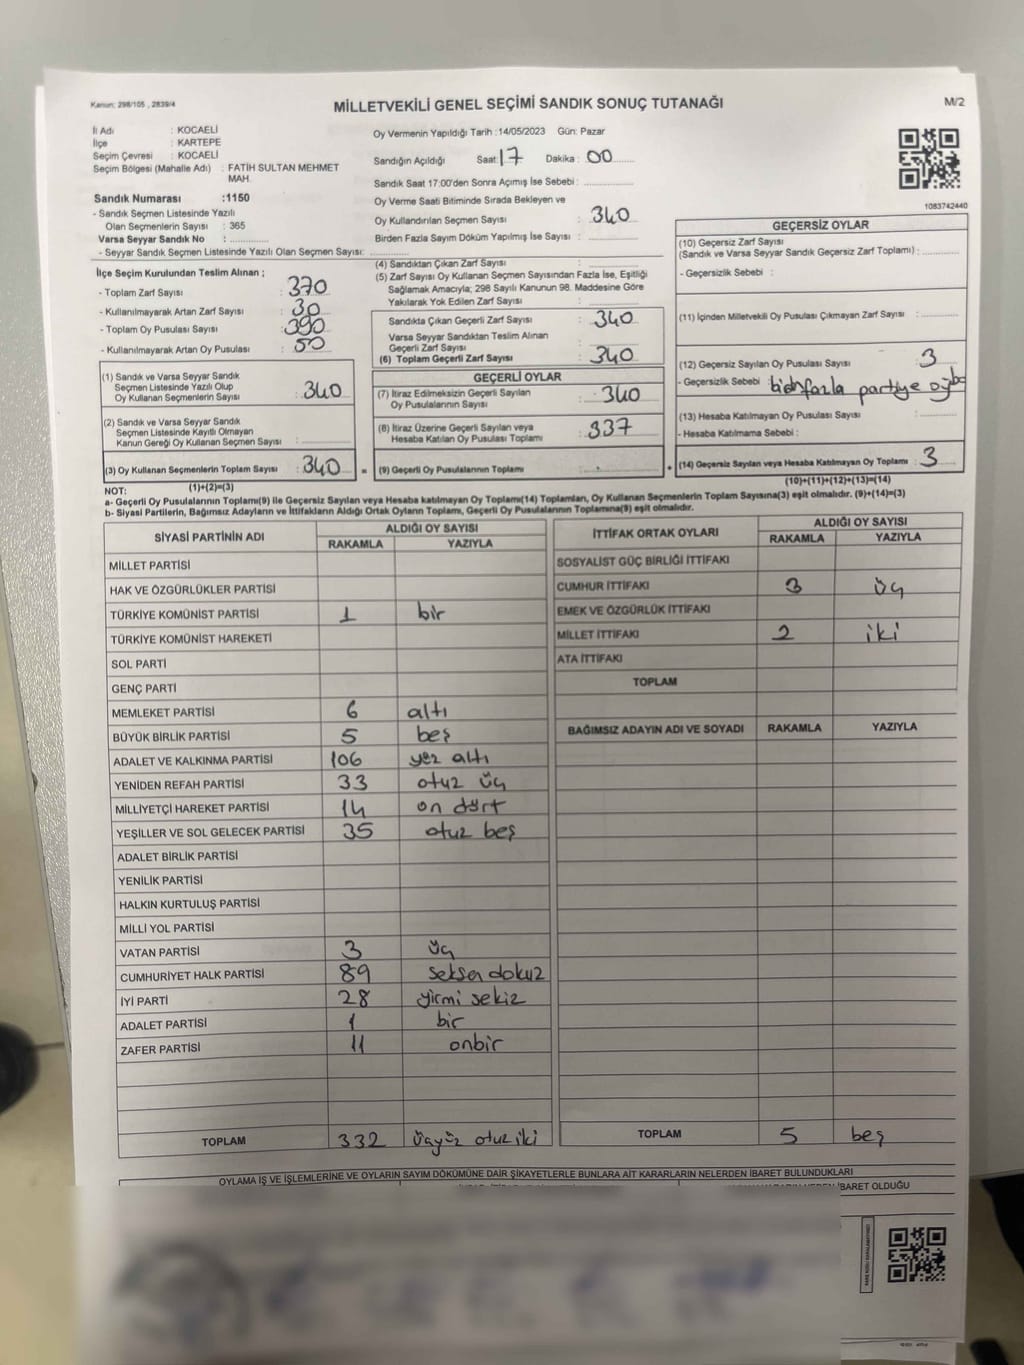 Kanun: 298/105 , 2839/4
MİLLETVEKİLİ GENEL SEÇİMİ SANDIK SONUÇ TUTANAĞI
M/2
İl Adı : KOCAELİ
İlçe : KARTEPE
Seçim Çevresi : KOCAELİ
Seçim Bölgesi (Mahalle Adı) : FATİH SULTAN MEHMET
MAH.
Sandık Numarası :1150
- Sandık Seçmen Listesinde Yazılı
Olan Seçmenlerin Sayısı : 365
Varsa Seyyar Sandık No :
- Seyyar Sandık Seçmen Listesinde Yazılı Olan Seçmen Sayısı:
Oy Vermenin Yapıldığı Tarih :14/05/2023 Gün: Pazar
Sandığın Açıldığı Saat 17 Dakika : 00
Sandık Saat 17:00'den Sonra Açımış İse Sebebi :
Oy Verme Saati Bitiminde Sırada Bekleyen ve
Oy Kullandırılan Seçmen Sayısı : 340
Birden Fazla Sayım Döküm Yapılmış İse Sayısı :
1083742440
İlçe Seçim Kurulundan Teslim Alınan ;
- Toplam Zarf Sayısı : 370
- Kullanılmayarak Artan Zarf Sayısı : 30
- Toplam Oy Pusulası Sayısı : 390
- Kullanılmayarak Artan Oy Pusulası : 50
(1) Sandık ve Varsa Seyyar Sandık
Seçmen Listesinde Yazılı Olup
Oy Kullanan Seçmenlerin Sayısı : 340
(2) Sandık ve Varsa Seyyar Sandık
Seçmen Listesinde Kayıtlı Olmayan
Kanun Gereği Oy Kullanan Seçmen Sayısı :
(3) Oy Kullanan Seçmenlerin Toplam Sayısı : 340
(1)+(2)=(3)
(4) Sandıktan Çıkan Zarf Sayısı :
(5) Zarf Sayısı Oy Kullanan Seçmen Sayısından Fazla İse, Eşitliği
Sağlamak Amacıyla; 298 Sayılı Kanunun 98. Maddesine Göre
Yakılarak Yok Edilen Zarf Sayısı :
Sandıkta Çıkan Geçerli Zarf Sayısı : 340
Varsa Seyyar Sandıktan Teslim Alınan
Geçerli Zarf Sayısı :
(6) Toplam Geçerli Zarf Sayısı : 340
GEÇERLİ OYLAR
(7) İtiraz Edilmeksizin Geçerli Sayılan
Oy Pusulalarının Sayısı : 340
(8) İtiraz Üzerine Geçerli Sayılan veya
Hesaba Katılan Oy Pusulası Toplamı : 337
= (9) Geçerli Oy Pusulalarının Toplamı :
GEÇERSİZ OYLAR
(10) Geçersiz Zarf Sayısı
(Sandık ve Varsa Seyyar Sandık Geçersiz Zarf Toplamı) :
- Geçersizlik Sebebi :
(11) İçinden Milletvekili Oy Pusulası Çıkmayan Zarf Sayısı :
(12) Geçersiz Sayılan Oy Pusulası Sayısı : 3
- Geçersizlik Sebebi : fazla partiye
(13) Hesaba Katılmayan Oy Pusulası Sayısı :
- Hesaba Katılmama Sebebi :
+ (14) Geçersiz Sayılan veya Hesaba Katılmayan Oy Toplamı : 3
(10)+(11)+(12)+(13)=(14)
NOT:
a- Geçerli Oy Pusulalarının Toplamı(9) ile Geçersiz Sayılan veya Hesaba katılmayan Oy Toplamı(14) Toplamları, Oy Kullanan Seçmenlerin Toplam Sayısına(3) eşit olmalıdır. (9)+(14)=(3)
b- Siyasi Partilerin, Bağımsız Adayların ve İttifakların Aldığı Ortak Oyların Toplamı, Geçerli Oy Pusulalarının Toplamına(9) eşit olmalıdır.
SİYASİ PARTİNİN ADI ALDIĞI OY SAYISI
RAKAMLA YAZIYLA
MİLLET PARTİSİ
HAK VE ÖZGÜRLÜKLER PARTİSİ
TÜRKİYE KOMÜNİST PARTİSİ 1 bir
TÜRKİYE KOMÜNİST HAREKETİ
SOL PARTİ
GENÇ PARTİ
MEMLEKET PARTİSİ 6 altı
BÜYÜK BİRLİK PARTİSİ 5 beş
ADALET VE KALKINMA PARTİSİ 106 yüz altı
YENİDEN REFAH PARTİSİ 33 otuz üç
MİLLİYETÇİ HAREKET PARTİSİ 14 on dört
YEŞİLLER VE SOL GELECEK PARTİSİ 35 otuz beş
ADALET BİRLİK PARTİSİ
YENİLİK PARTİSİ
HALKIN KURTULUŞ PARTİSİ
MİLLİ YOL PARTİSİ
VATAN PARTİSİ 3 üç
CUMHURİYET HALK PARTİSİ 89 seksen dokuz
İYİ PARTİ 28 yirmi sekiz
ADALET PARTİSİ 1 bir
ZAFER PARTİSİ 11 onbir
TOPLAM 332 üçyüz otuz iki
İTTİFAK ORTAK OYLARI ALDIĞI OY SAYISI
RAKAMLA YAZIYLA
SOSYALİST GÜÇ BİRLİĞİ İTTİFAKI
CUMHUR İTTİFAKI 3 üç
EMEK VE ÖZGÜRLÜK İTTİFAKI
MİLLET İTTİFAKI 2 iki
ATA İTTİFAKI
TOPLAM
BAĞIMSIZ ADAYIN ADI VE SOYADI RAKAMLA YAZIYLA
TOPLAM 5 beş
OYLAMA İŞ VE İŞLEMLERİNE VE OYLARIN SAYIM DÖKÜMÜNE DAİR ŞİKAYETLERLE BUNLARA AİT KARARLARIN NELERDEN İBARET BULUNDUKLARI
İBARET OLDUĞU